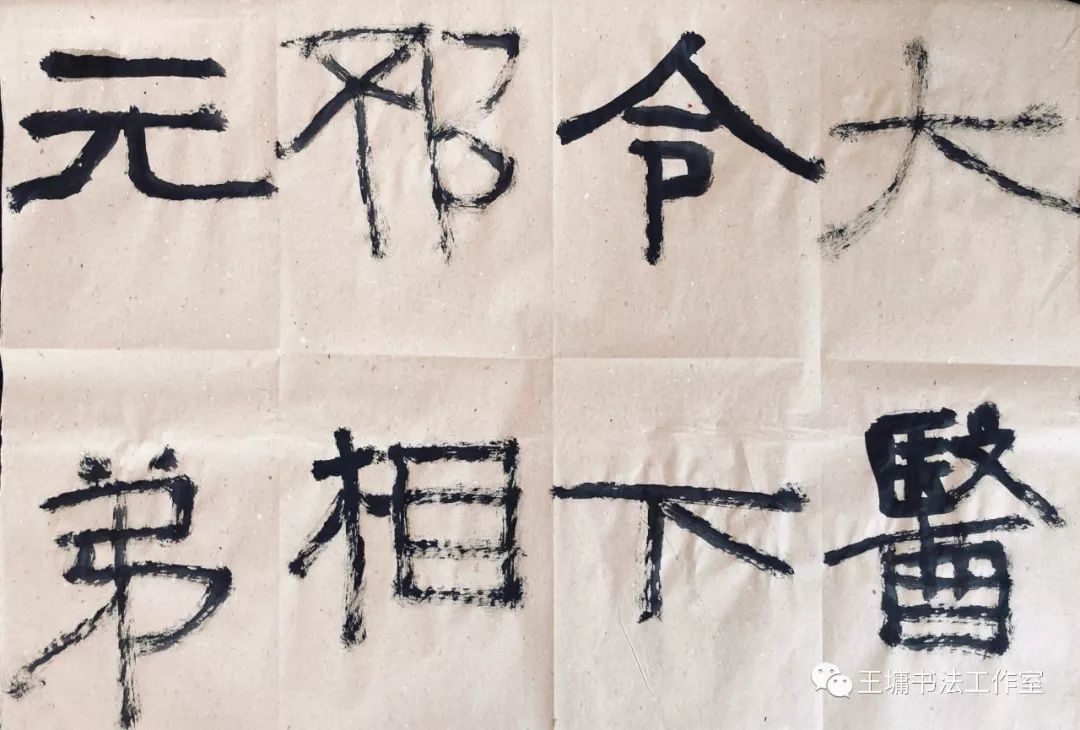 大醫
令下
邳相
元弟
王墉书法工作室